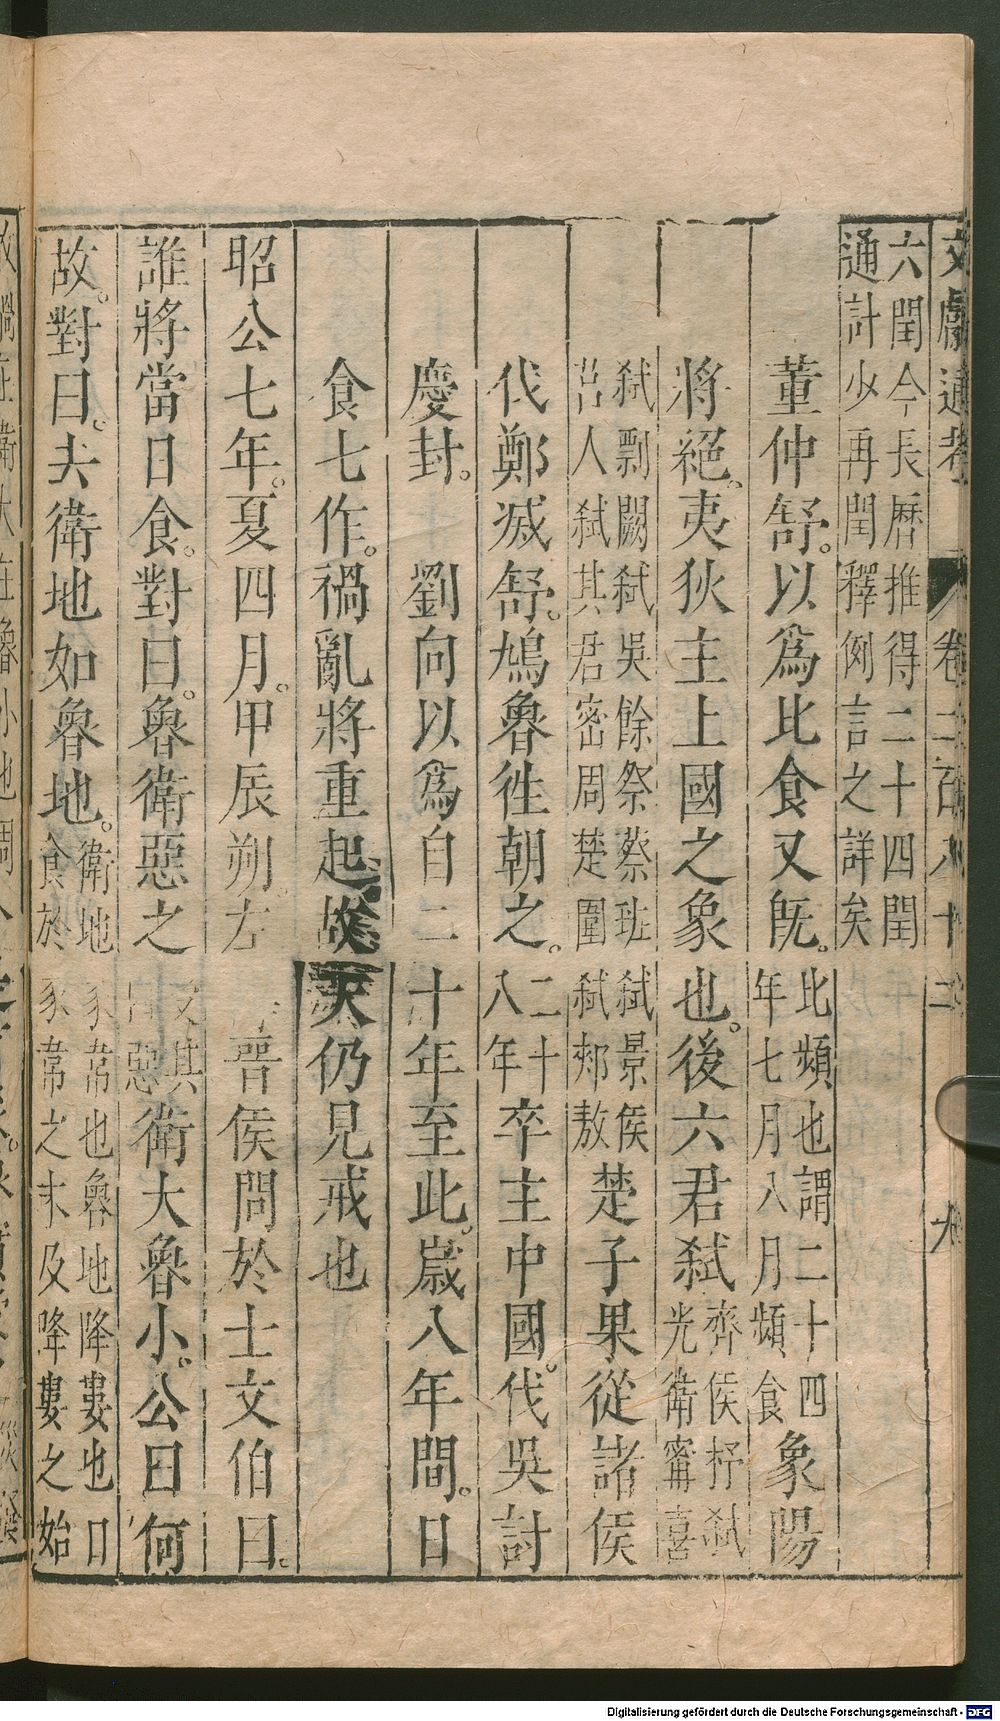 文獻通考 卷二百八十二 九
六閏今長曆推得二十四閏
通計少再閏釋例言之詳矣
董仲舒以爲比食又旣比頻也謂二十四年七月八月頻食象陽
將絕夷狄主上國之象也後六君弑齊侯杼弑光衛甯喜
弑剽闕弑吳餘祭蔡班弑景侯
莒人弑其君密周楚圍弑郟敖楚子果從諸侯
伐鄭滅舒鳩魯徃朝之二十八年卒主中國伐吳討
慶封 劉向以爲自二十年至此歲八年間日
食七作禍亂將重起故天仍見戒也
昭公七年夏四月甲辰朔 晉侯問於士文伯曰
誰將當日食對曰魯衛惡之 衛大魯小公曰何
故對曰夫衛地如魯地衛地豕韋也魯地降婁也日
食於豕韋之末及降婁之始
Digitalisierung gefördert durch die Deutsche Forschungsgemeinschaft - DFG